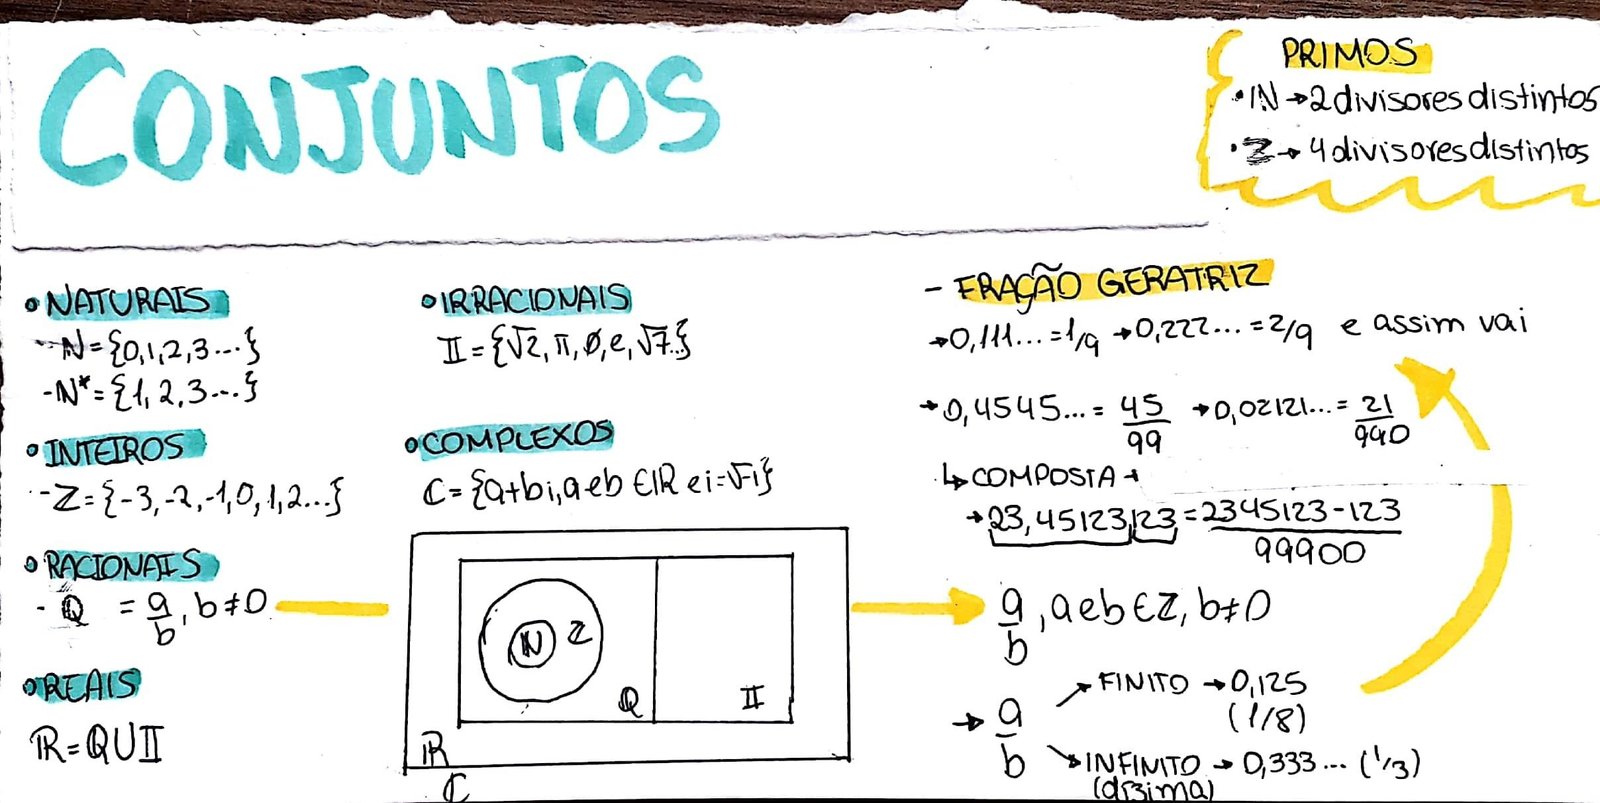 CONJUNTOS
PRIMOS
•ℕ→2 divisores distintos
•ℤ→4 divisores distintos
•NATURAIS
-ℕ={0,1,2,3...}
-ℕ*={1,2,3...}
•INTEIROS
-ℤ={-3,-2,-1,0,1,2...}
•RACIONAIS
-ℚ = a/b, b≠0
•REAIS
ℝ=ℚ∪𝕀
•IRRACIONAIS
𝕀={√2,π,ø,e,√7...}
•COMPLEXOS
ℂ={a+bi,a e b ∈ℝ e i=√-1}
ℕ ℤ
ℚ 𝕀
ℝ
ℂ
- FRAÇÃO GERATRIZ
→0,111...=1/9 →0,222...=2/9 e assim vai
→0,4545...=45/99 →0,02121...=21/990
↳COMPOSTA→
→23,45123,123=2345123-123/99900
a/b, a e b ∈ℤ, b≠0
→ a/b
FINITO →0,125
(1/8)
INFINITO→0,333...(1/3)
(dízima)